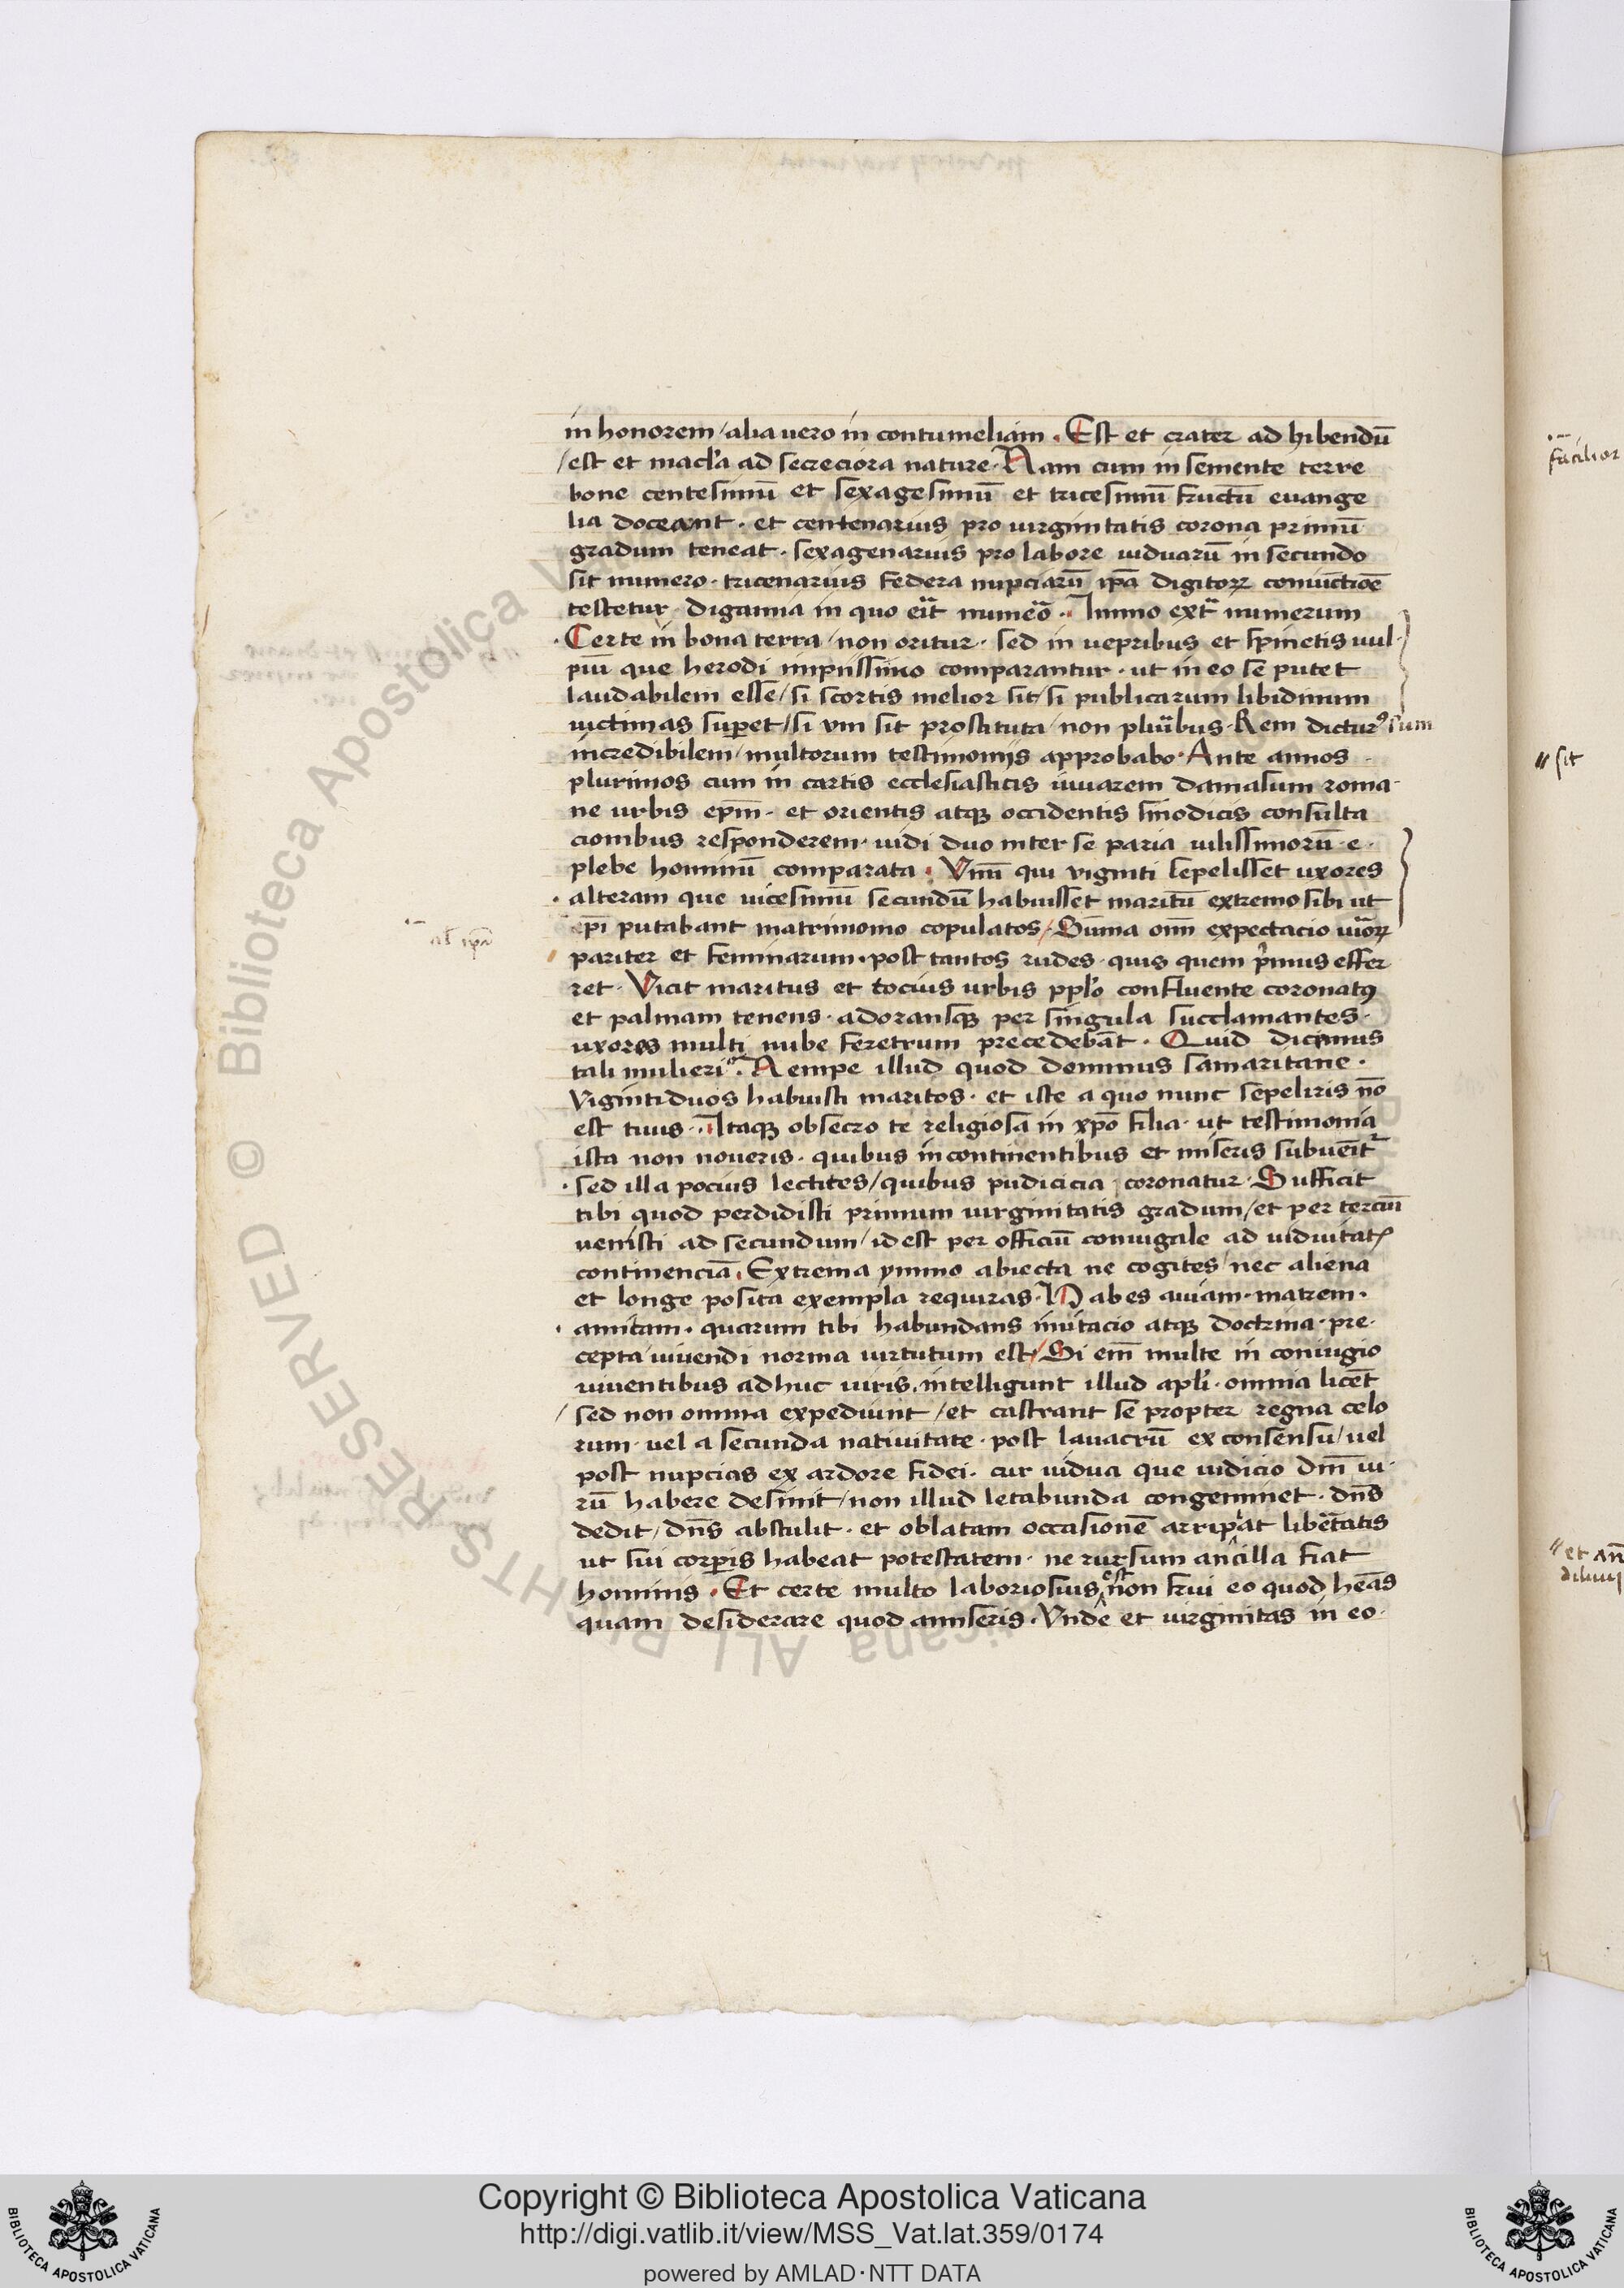 in honorem / alia uero in contumeliam . Est et crater ad hibendū
/ est et macl'a ad secreciora nature . Nam cum in semente terre
bone centesimū et sexagesimū et tricesimū fructū euange
lia doceant . et centenarius pro uirginitatis corona primū
gradum teneat . sexagenarius pro labore uiduarū in secundo
sit numero . tricenarius federa nupciarū ip̄a digitoꝝ coniūctiōē
testetur . digamia in quo eͣit numeͦo . Immo extͣ numerum
. Certe in bona terra / non oritur . sed in uepribus et spinetis uul .
piū que herodi impiissimo comparantur . ut in eo se putet
laudabilem esse / si scortis melior sit / si publicarum libidinum
uictimas suꝑet / si vni sit prostituta / non pluͥibus . Rem dicturꝰ sum
incredibilem / multorum testimonijs approbabo . Ante annos
plurimos cum in cartis ecclesiasticis iuuarem damasum roma .
ne urbis ep̄m . et orientis atqꝫ occidentis sinodicis consulta
cionibus responderem . uidi duo inter se paria uilissimorū . e .
plebe hominū comparata . Vnū qui viginti sepelisset uxores
. alteram que uicesimū secundū habuisset maritū extremo sibi ut
ep̄i putabant matrimonio copulatos / Sūma om̄ expectacio uiͦoꝝ
al' ip̄i
pariter et feminarum . post tantos rudes . quis quem pͥmus effer
ret . Vicit maritus et tocius urbis ppl'o confluente coronatꝰ
et palmam tenens . adoransqꝫ per singula succlamantes .
uxores multi nube feretrum precedebāt . Quid dicimus
tali mulieri . Nempe illud quod dominus samaritane .
Viginti duos habuisti maritos . et iste a quo nunc sepeliris nō
est tuus . Itaqꝫ obsecro te religiosa in xp̄o filia . ut testimonia
ista non noueris . quibus incontinentibus et miseris subuēit᷑
. sed illa pocius lectites / quibus pudicicia coronatur . Sufficit
tibi quod perdidisti primum uirginitatis gradum / et per terciū
uenisti ad secundum / id est per officiū coniugale ad uiduitatꝭ
continenciā . Extrema ymmo abiecta ne cogites / nec aliena
et longe posita exempla requiras . Habes auiam . matrem .
. amitam . quarum tibi habundans imitacio atqꝫ doctrina . pre .
cepta uiuendi norma uirtutum est / Si em̄ multe in coniugio
uiuentibus adhuc uiris . intelligunt illud apl'i . omnia licēt
/ sed non omnia expediunt / et castrant se propter regna celo
rum . uel a secunda natiuitate . post lauacrū ex consensu / uel
post nupcias ex ardore fidei . cur uidua que iudicio dm̄ ui .
rū habere desinit / non illud letabunda congeminet . dn̄s
dedit / dn̄s abstulit . et oblatam occasionē arripiat libētatis
ut sui corꝑis habeat potestatem . ne rursum ancilla fiat
hominis . Et certe multo laboriosius est non frui eo quod hēas
quam desiderare quod amiseris . Vnde et uirginitas in eo .
facilior
// sit
Copyright © Biblioteca Apostolica Vaticana
http://digi.vatlib.it/view/MSS_Vat.lat.359/0174
powered by AMLAD·NTT DATA
BIBLIOTECA APOSTOLICA VATICANA
BIBLIOTECA APOSTOLICA VATICANA